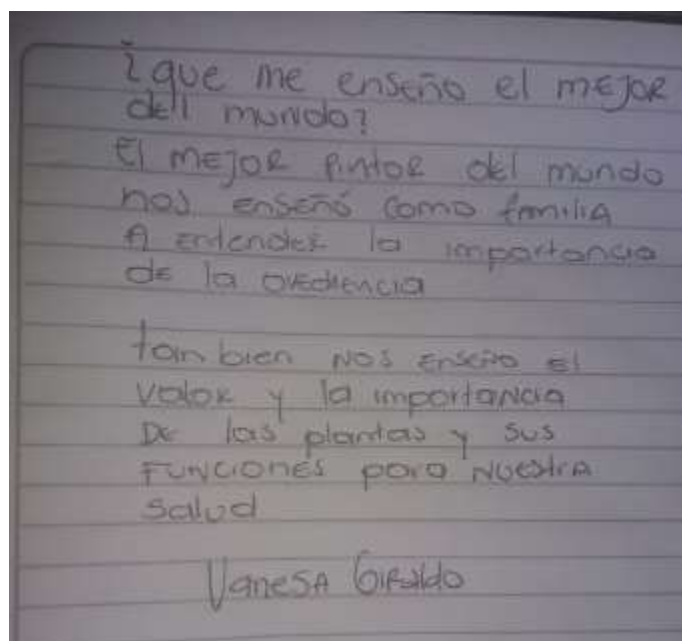 ¿que me enseño el mejor
dell mundo?
El mejor pintor del mundo
nos enseñó como familia
A entender la importancia
de la ovediencia
tambien nos enseño el
valor y la importancia
De las plantas y sus
Funciones para nuestra
salud
Vanesa Giraldo